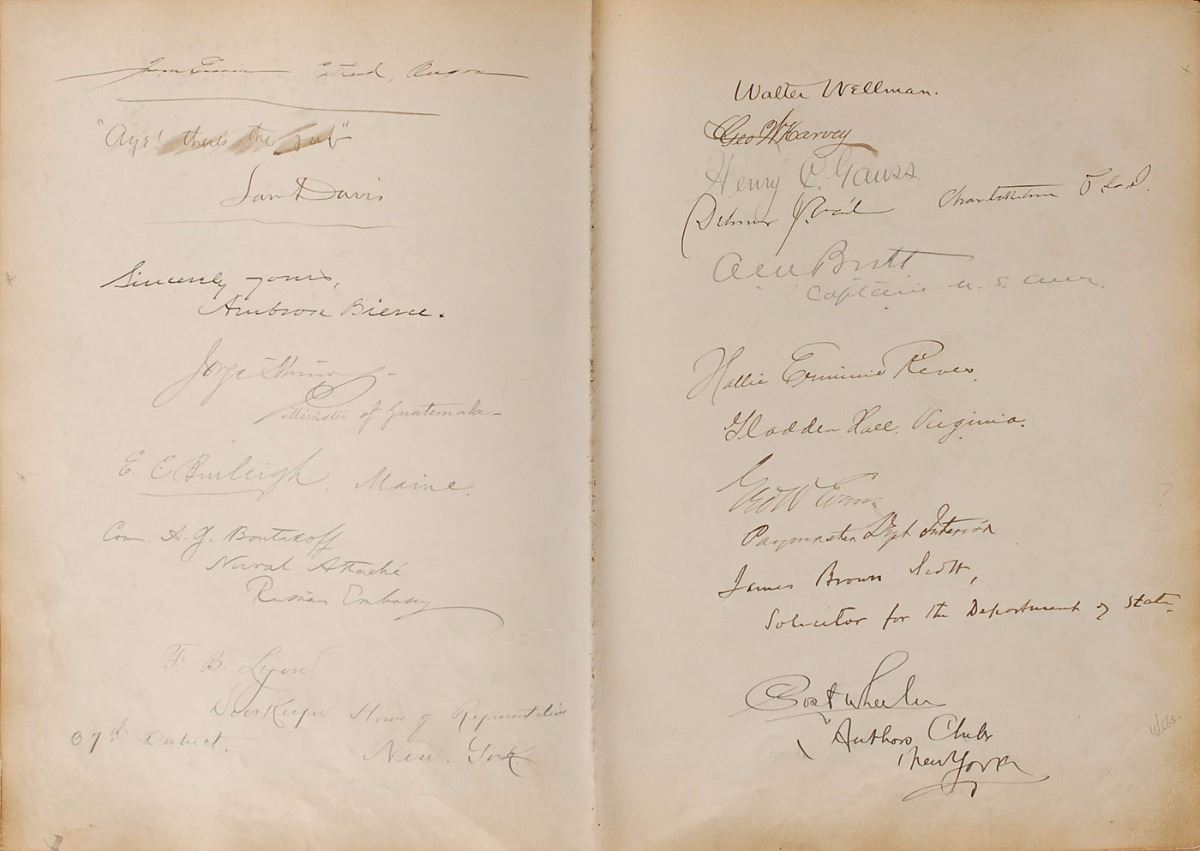 "Aye! there's the rub"
Sam Davis
Sincerely yours,
Ambrose Bierce.
Jorge
Minister of Guatemala
E. C. Burleigh, Maine.
Comm. A. G. Boutakoff
Naval Attaché
Russian Embassy
F. B. Lyon
Doorkeeper House of Representatives
37th District.
New York
Walter Wellman.
Geo W Harvey
Henry C. Gauss
A W Butt
Captain U. S. Army.
Hallie Erminie Rives
Gladden Hall. Virginia.
Geo W Evans
Paymaster Dept Interior
James Brown Scott,
Solicitor for the Department of State
Post Wheeler
Authors Club
New York
Webs.